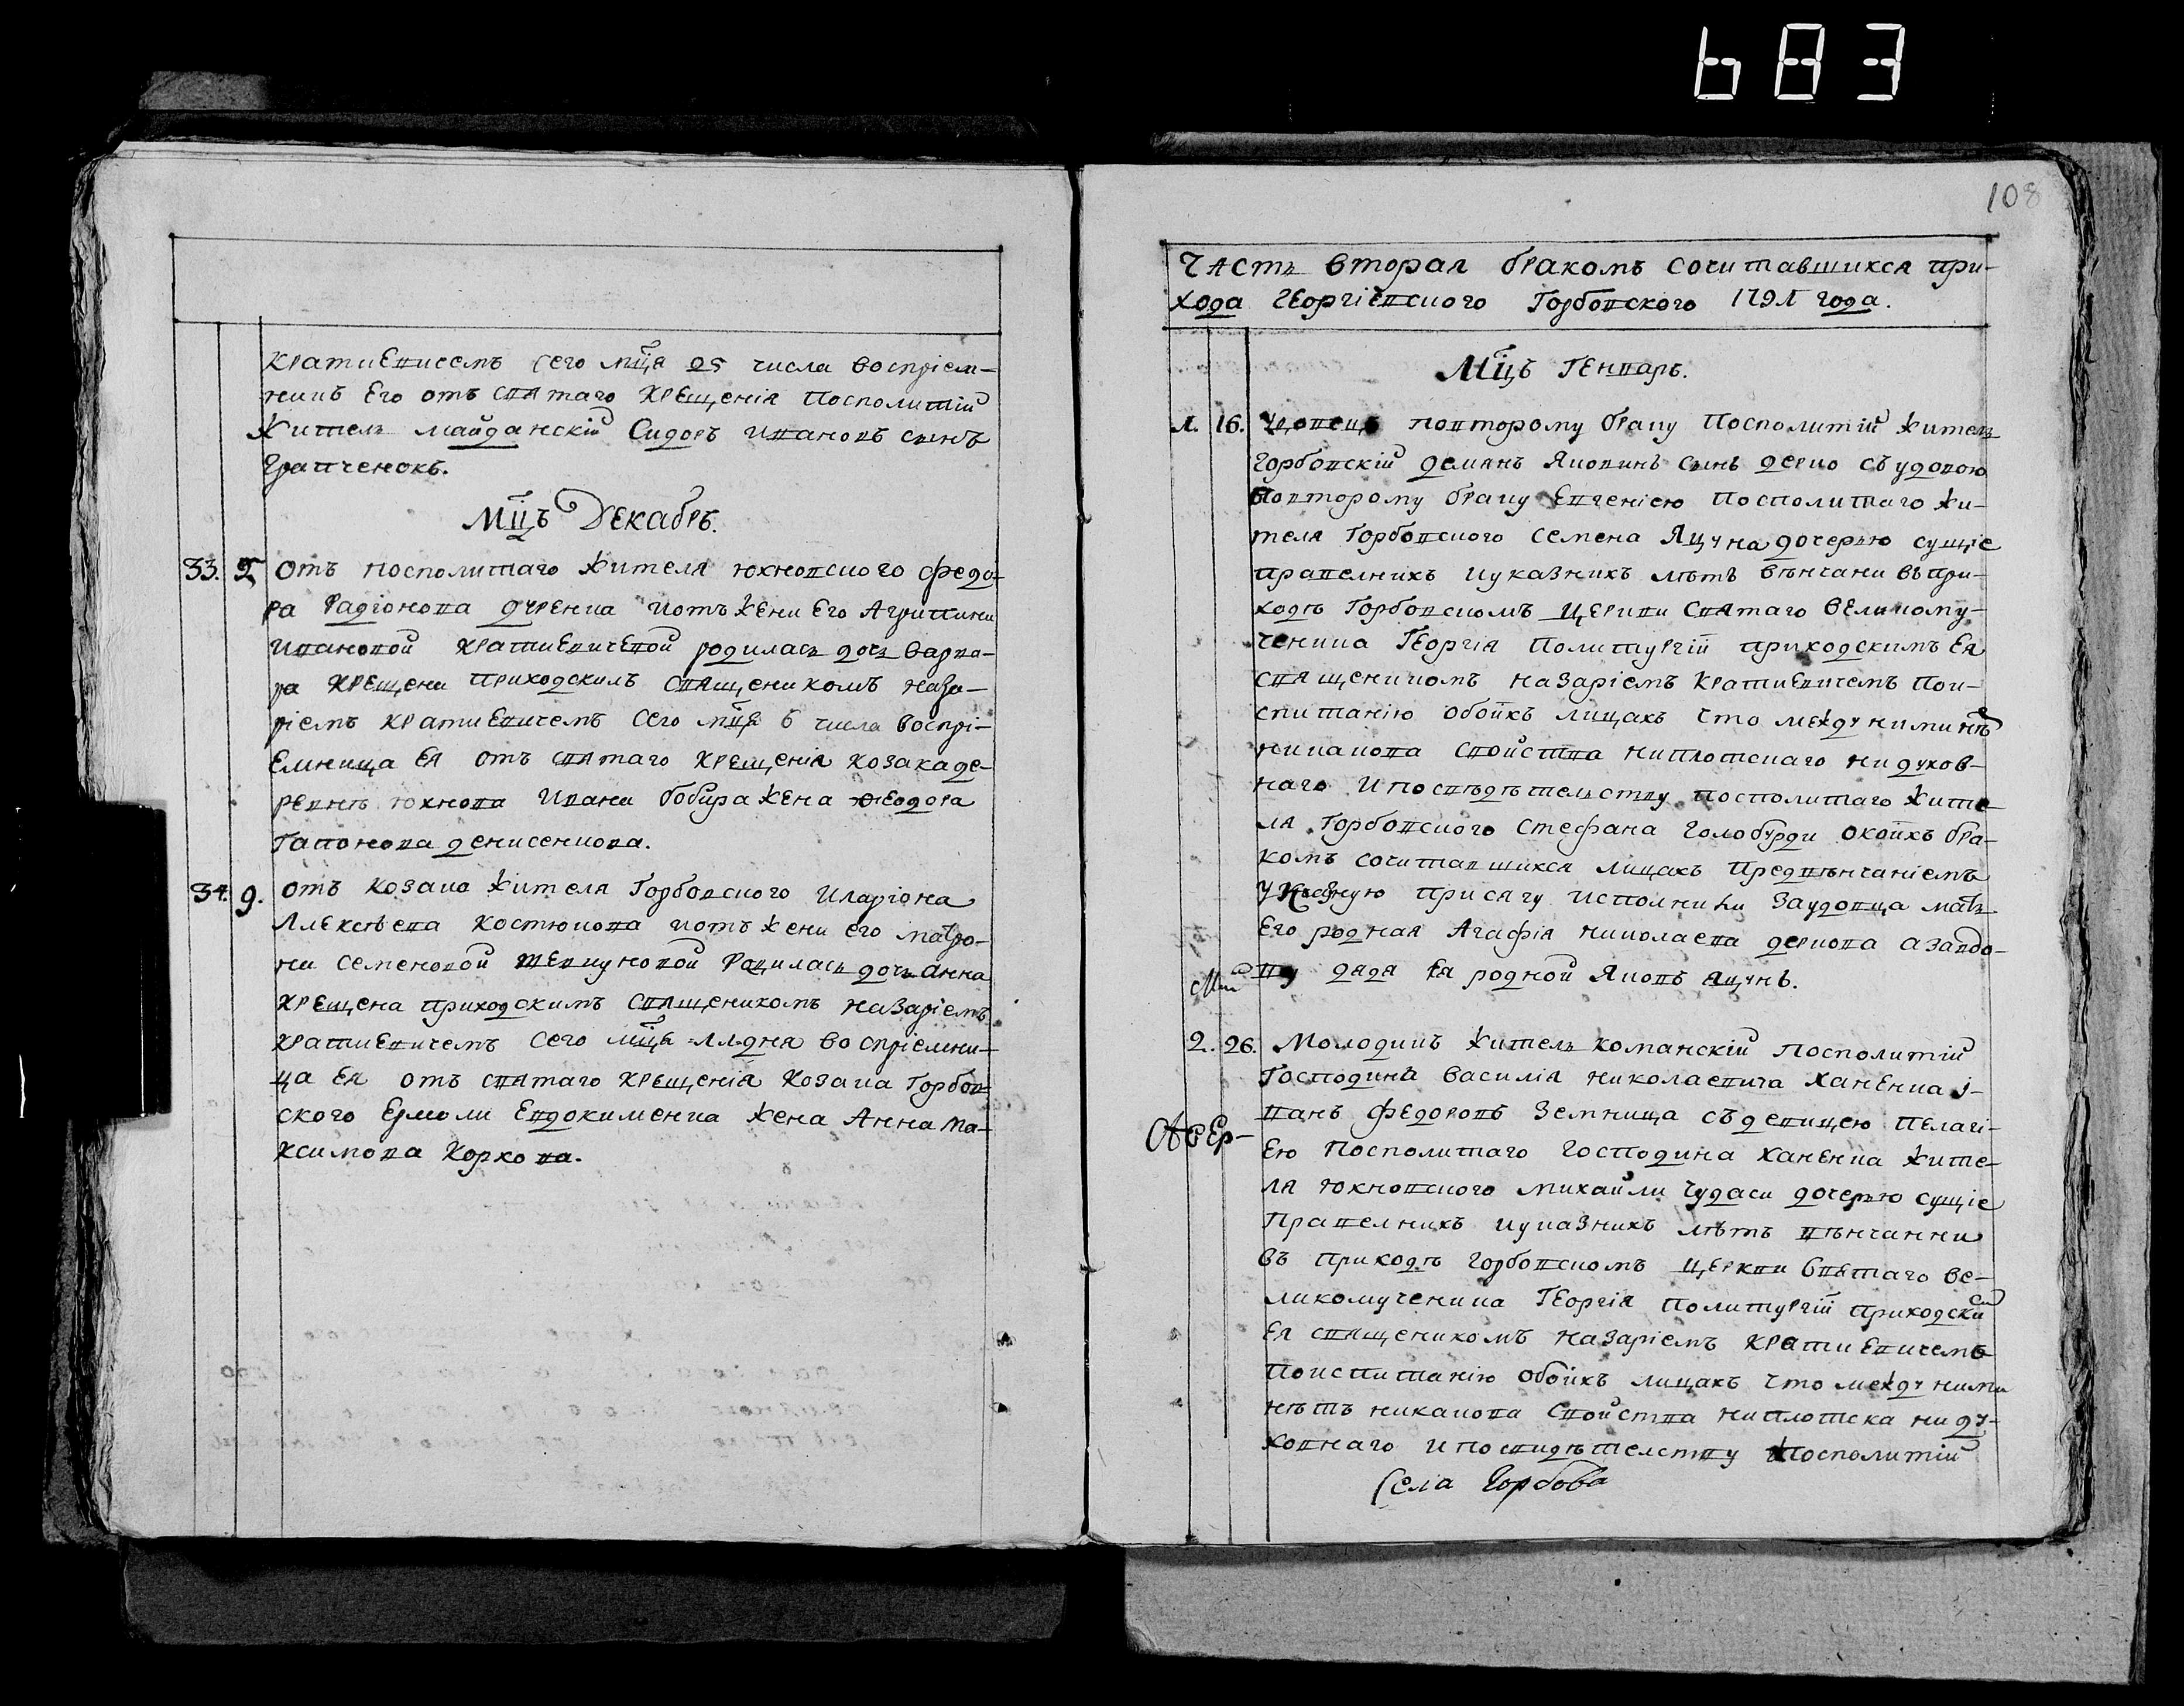 683
108
кратиевисемъ сего мца 25 числа воспріем-
никъ его отъ святаго крещенія посполитій
житель майданскій Сидоръ Ивановъ сынъ
Мцъ Декабрь.
33. 5 отъ посполитаго жителя юхновского федо-
ра Радіонова дчренка иотъ жени его Агрипини
Ивановой кратиевичевой родилась дочь варва-
ра крещени приходскимъ священикомъ Наза-
ріемъ кратиевичемъ сего мца 6 числа воспрі-
емница ея отъ святаго крещенія козака де-
ревнѣ юхнова Ивани бобира жена Феодора
Гапонова денисенкова.
34. 9. отъ козака жителя Горбовского Иларіона
Алексѣева Костюкова иотъ жени его матро-
ни семеновой родилась дочь анна
крещена приходскимъ священикомъ назаріемъ
кратиевичемъ сего мца 11. дня воспріемни-
ца ея отъ святаго крещенія козака Горбов
ского Ермоли Евдокименка жена Анна ма-
ксимова Коркова.
Часть вторая бракомъ сочитавшихся при-
хода Георгіевского Горбовского 1791 года.
Мцъ Генварь.
1. 16. вдовецъ повторому браку посполитій житель
горбовскій демянъ Яковинъ сынъ дерко съудовою
повторому браку Евгеніею посполитаго жи-
теля Горбовского семена Яцуна дочерью сущіе
правелнихъ иуказнихъ лѣтъ вѣнчани въпри-
ходѣ Горбовскомъ церкви святаго великому-
ченика Георгія политургіи приходскимъ ея
священикомъ назаріемъ кратиевичемъ пои-
спитанію обоихъ лицахъ что между ними нѣ
никакова свойства ниплотскаго нидухов-
наго ипосвѣдѣтельству посполитаго жите
ля Горбовского стефана голобурди окоихъ бра-
комъ сочитавшихся лицахъ предвѣнчаніемъ
указную присягу исполнили заудовца мать
его родная Агафія николаева деркова азавдо-
ву дядя ея родной Яковъ яцунъ.
2. 26. Молодикъ житель команскій посполитій
Господина василія николаевича Ханенка І-
ванъ федоровъ земница съдевицею пелагі-
ею посполитаго господина ханенка жите-
ля юхновского михайли чудаси дочерью сущіе
правелнихъ иуказнихъ лѣтъ вѣнчанни
въ приходѣ горбовскомъ церкви святаго ве-
ликомученика Георгія политургіи приходским
ея священикомъ назаріемъ кратиевичемъ
поиспитанію обоихъ лицахъ что между ними
нѣтъ никакова свойства ниплотска ниду-
ховнаго ипосвидѣтелству посполитій
Села Горбова